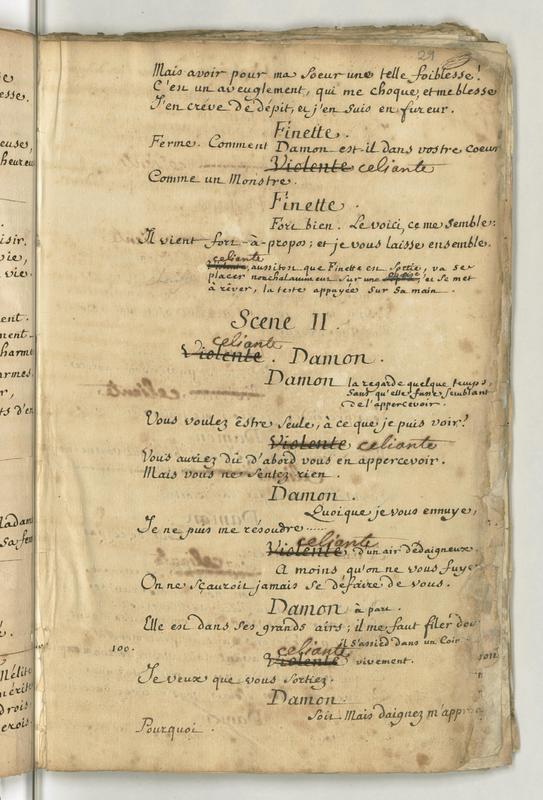 29
Mais avoir pour ma Soeur une telle foiblesse!
C'en un aveuglement, qui me choque, et me blesse
J'en créve de dépit, et j'en suis en fureur.
Finette.
Ferme. Comment Damon est-il dans vostre coeur
Violente celiante
Comme un Monstre.
Finette.
Fort bien. Le voici, ce me semble:
Il vient fort-à-propos; et je vous laisse ensemble.
celiante
Violente, aussitot que Finette en Sortie, va se
placer nonchalamment Sur une chaise, et se met
à réver, la teste appuyée Sur Sa main.
Scene II.
celiante
Violente. Damon.
Damon la regarde quelque temps,
Sans qu'elle fasse semblant
de l'appercevoir.
Vous voulez estre Seule, à ce que je puis voir?
Violente celiante
Vous auriez dû d'abord vous en appercevoir.
Mais vous ne Sentez rien.
Damon.
Quoique je vous ennuye,
Je ne puis me résoudre......
celiante
Violente, d'un air dédaigneux.
A moins qu'on ne vous fuye
On ne sçauroit jamais Se défaire de vous.
Damon à part.
Elle est dans Ses grands airs; il me faut filer dou
il S'assied dans un Coin
100.
celiante
Violente vivement.
Je veux que vous Sortiez.
Damon.
Soit. Mais daignez m'appr
Pourquoi.